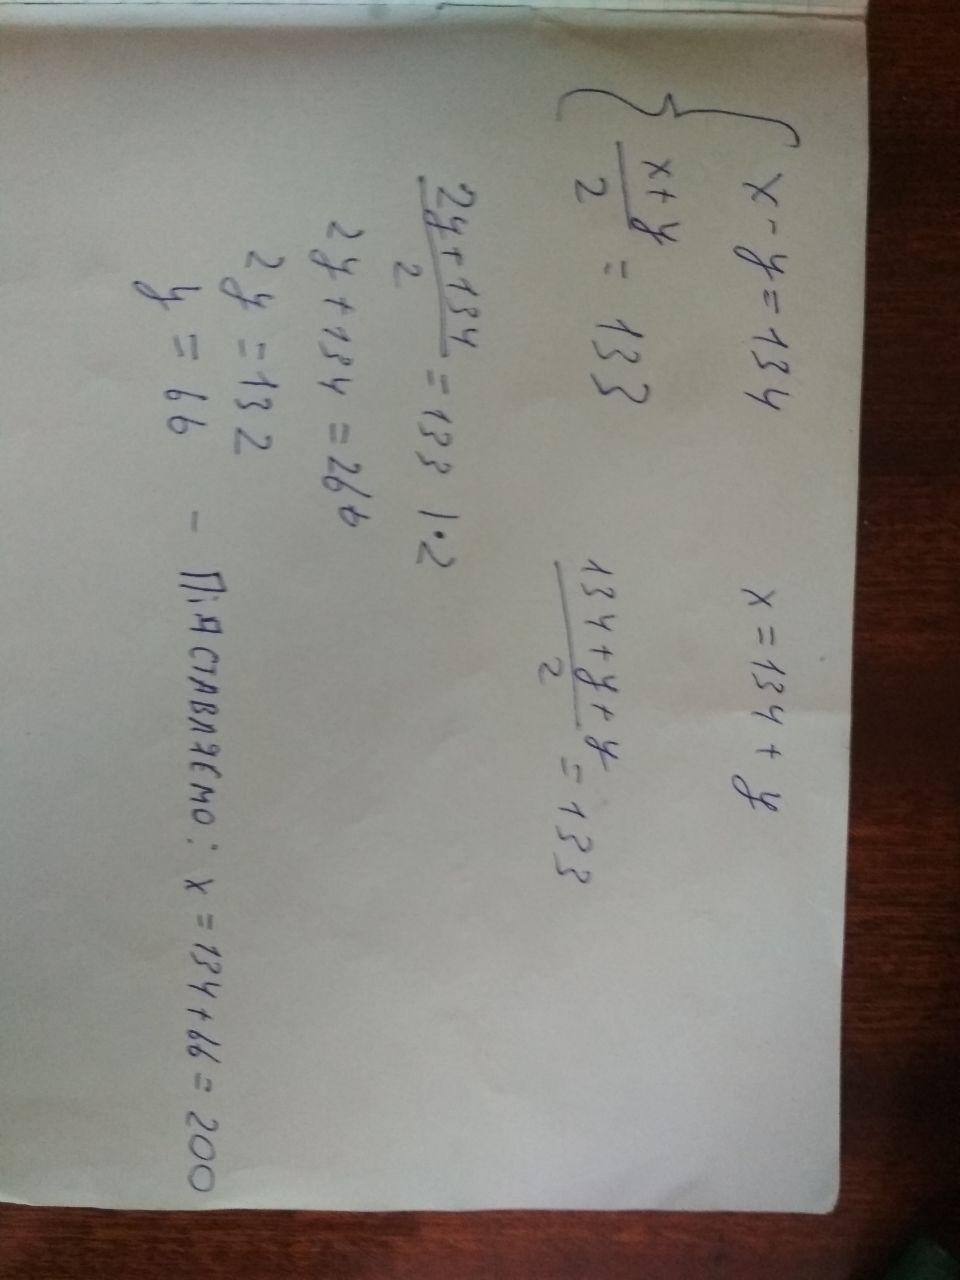 x - y = 134 x = 134 + y
x + y / 2 = 133 134 + y + y / 2 = 133
2y + 134 / 2 = 133 | • 2
2y + 134 = 266
2y = 132
y = 66 - Підставляємо: x = 134 + 66 = 200